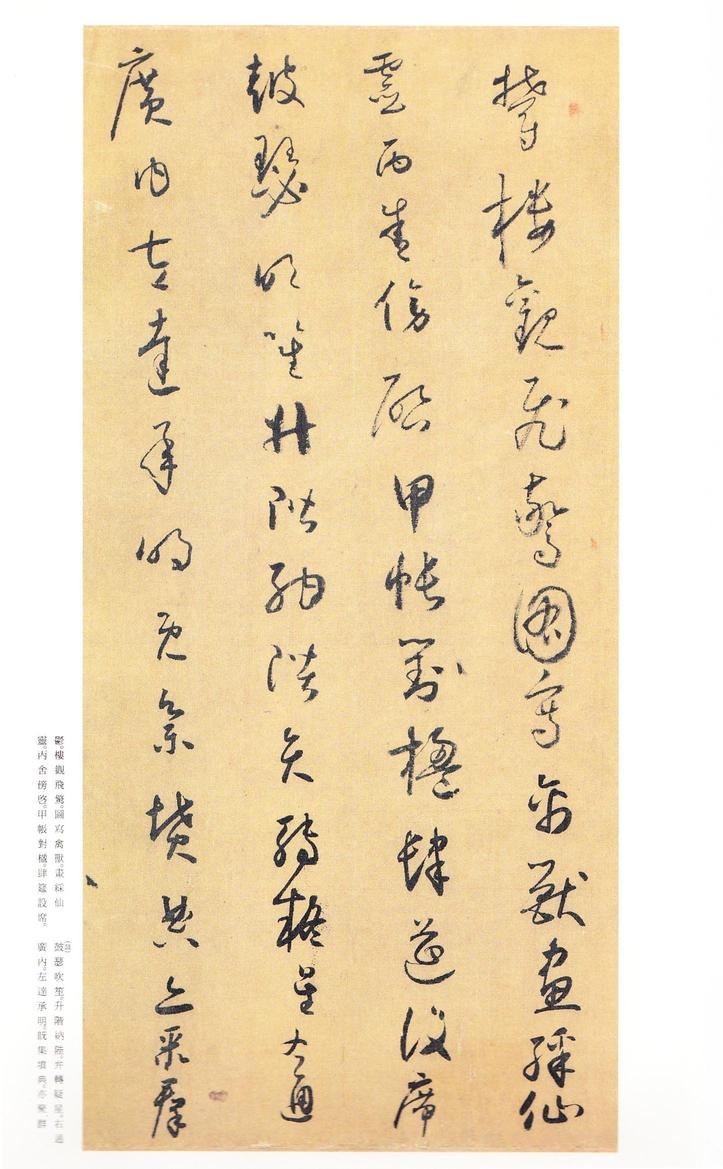 鬱樓觀飛驚圖寫禽獸畫綵仙
靈丙舍傍啓甲帳對楹肆筵設席
鼓瑟吹笙升階納陛弁轉疑星右通
廣內左達承明既集墳典亦聚群
鬱。樓觀飛驚。圖寫禽獸。畫綵仙
靈。丙舍傍啓。甲帳對楹。肆筵設席。
鼓瑟吹笙。升階納陛。弁轉疑星。右通
廣內。左達承明。既集墳典。亦聚群